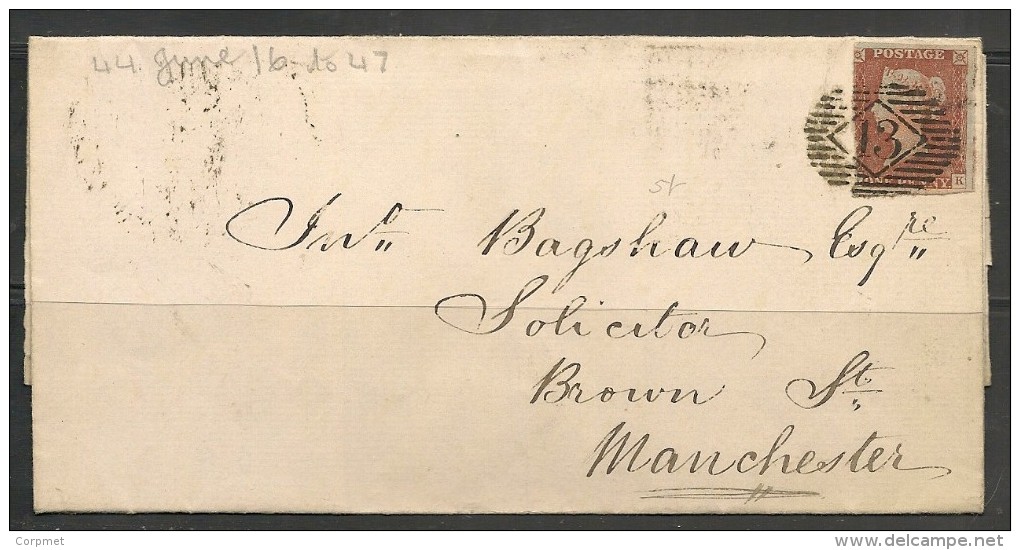 44 June 16 to 47
POSTAGE
13
ONE PENNY K
Jnº Bagshaw Esqre
Solicitor
Brown St.
Manchester
Corpmet
delcampe.net